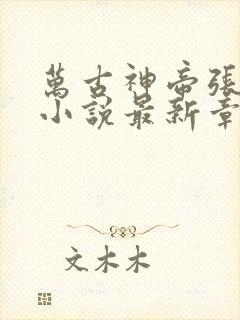 萬古神帝張
小說最新章
文木木